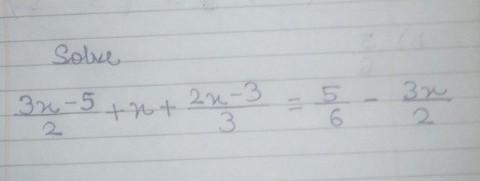 Solve
(3x-5)/2 + x + (2x-3)/3 = 5/6 - 3x/2